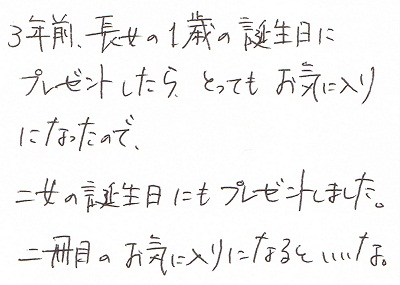 3年前、長女の1歳の誕生日に
プレゼントしたら、とっても お気に入り
になったので、
二女の誕生日にもプレゼントしました。
二冊目のお気に入りになるといいな。